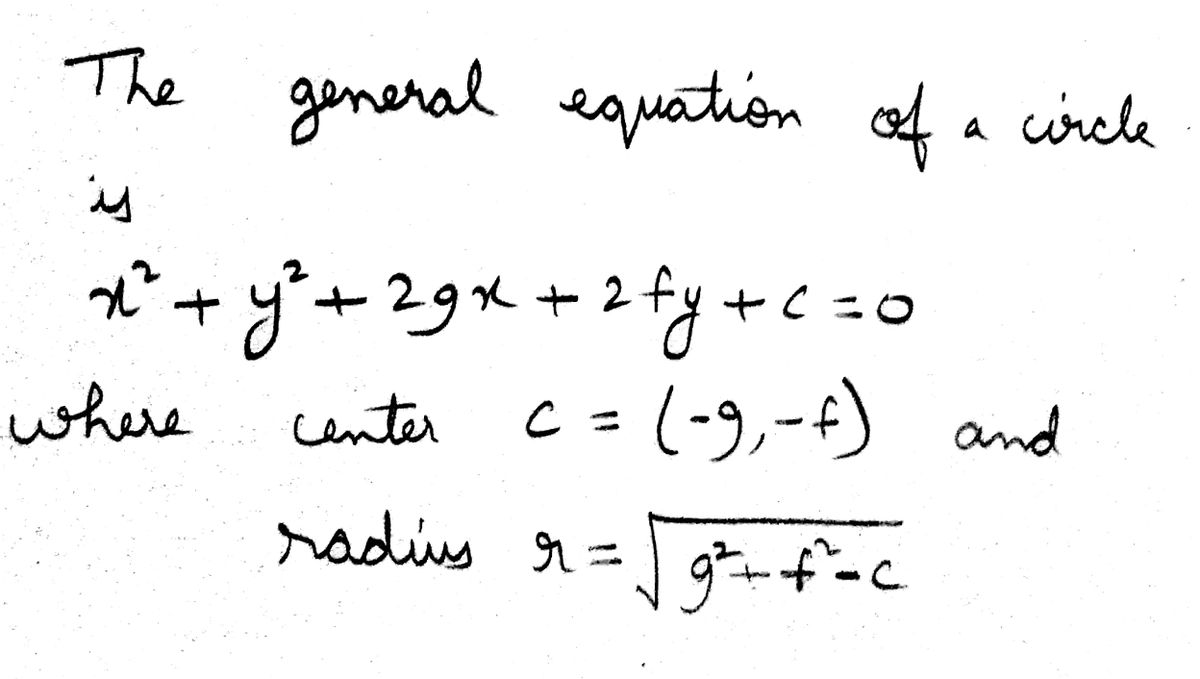 The general equation of a circle
is
x² + y² + 2gx + 2fy + c = 0
where center c = (-g, -f) and
radius r = √(g² + f² - c)